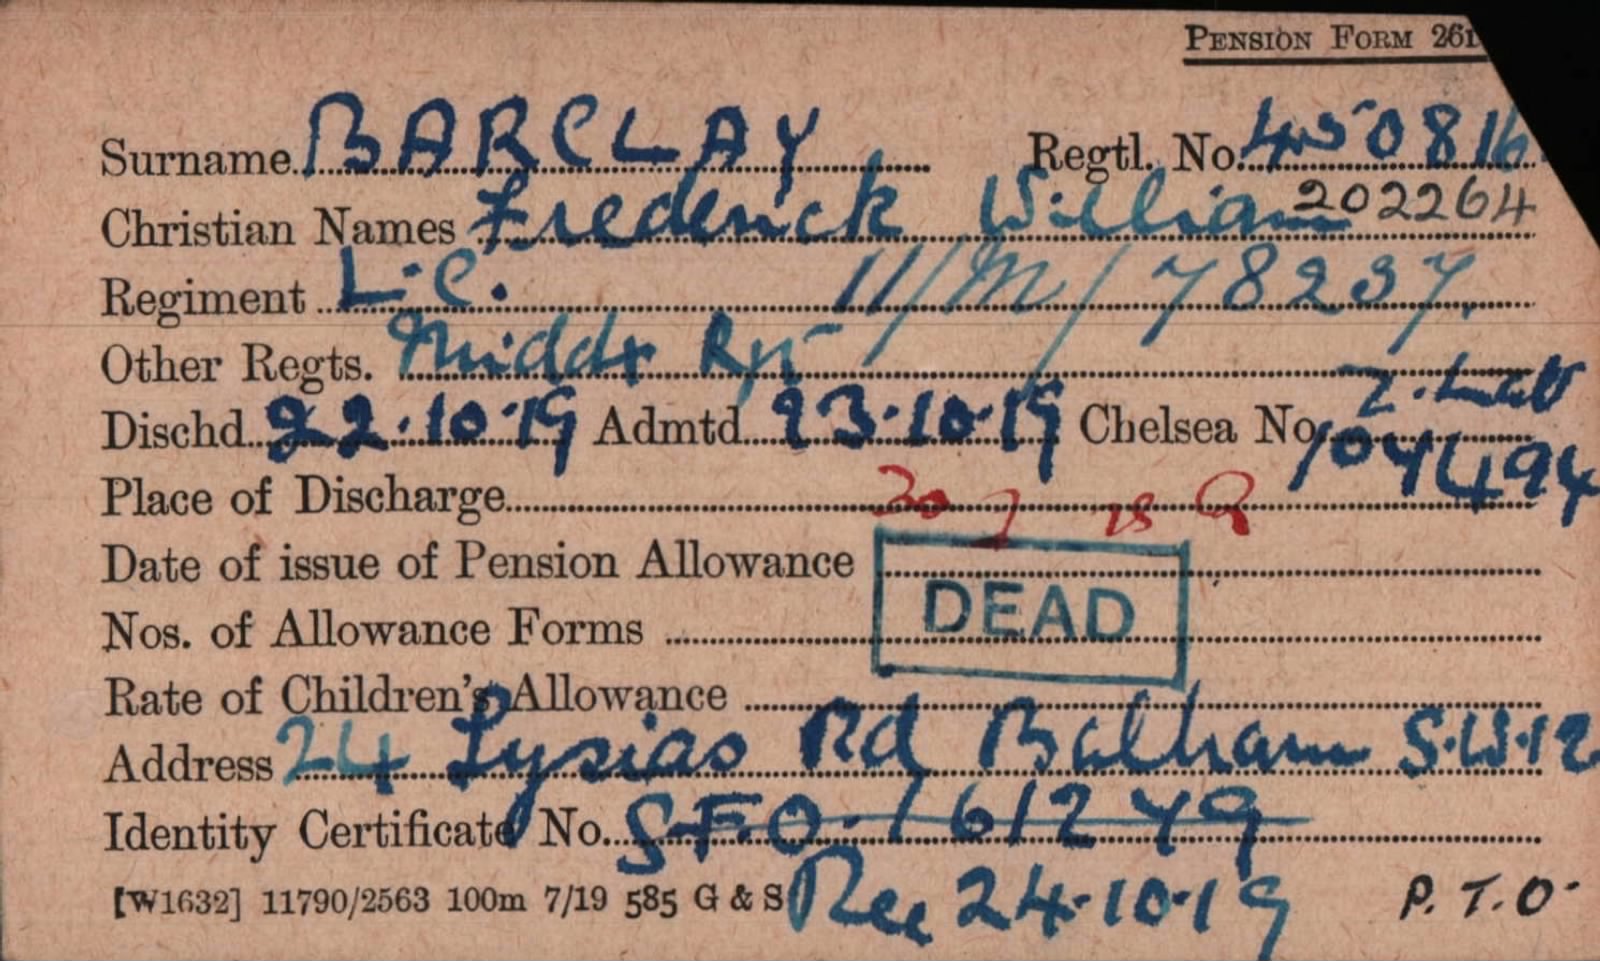 PENSION FORM 261
Surname BARCLAY Regtl. No. 450816
Christian Names Frederick William 202264
Regiment L.C. 11/M/78237.
Other Regts. Middx Rgt
Z. Lab
Dischd. 22.10.19 Admtd. 23.10.19 Chelsea No. 
1074494
Place of Discharge
Date of issue of Pension Allowance
DEAD
Nos. of Allowance Forms
Rate of Children's Allowance
Address 24 Lysias Rd Balham S.W.12
Identity Certificate No. S.F.O. 161279
[W1632] 11790/2563 100m 7/19 585 G & S Rec 24.10.19 P.T.O.